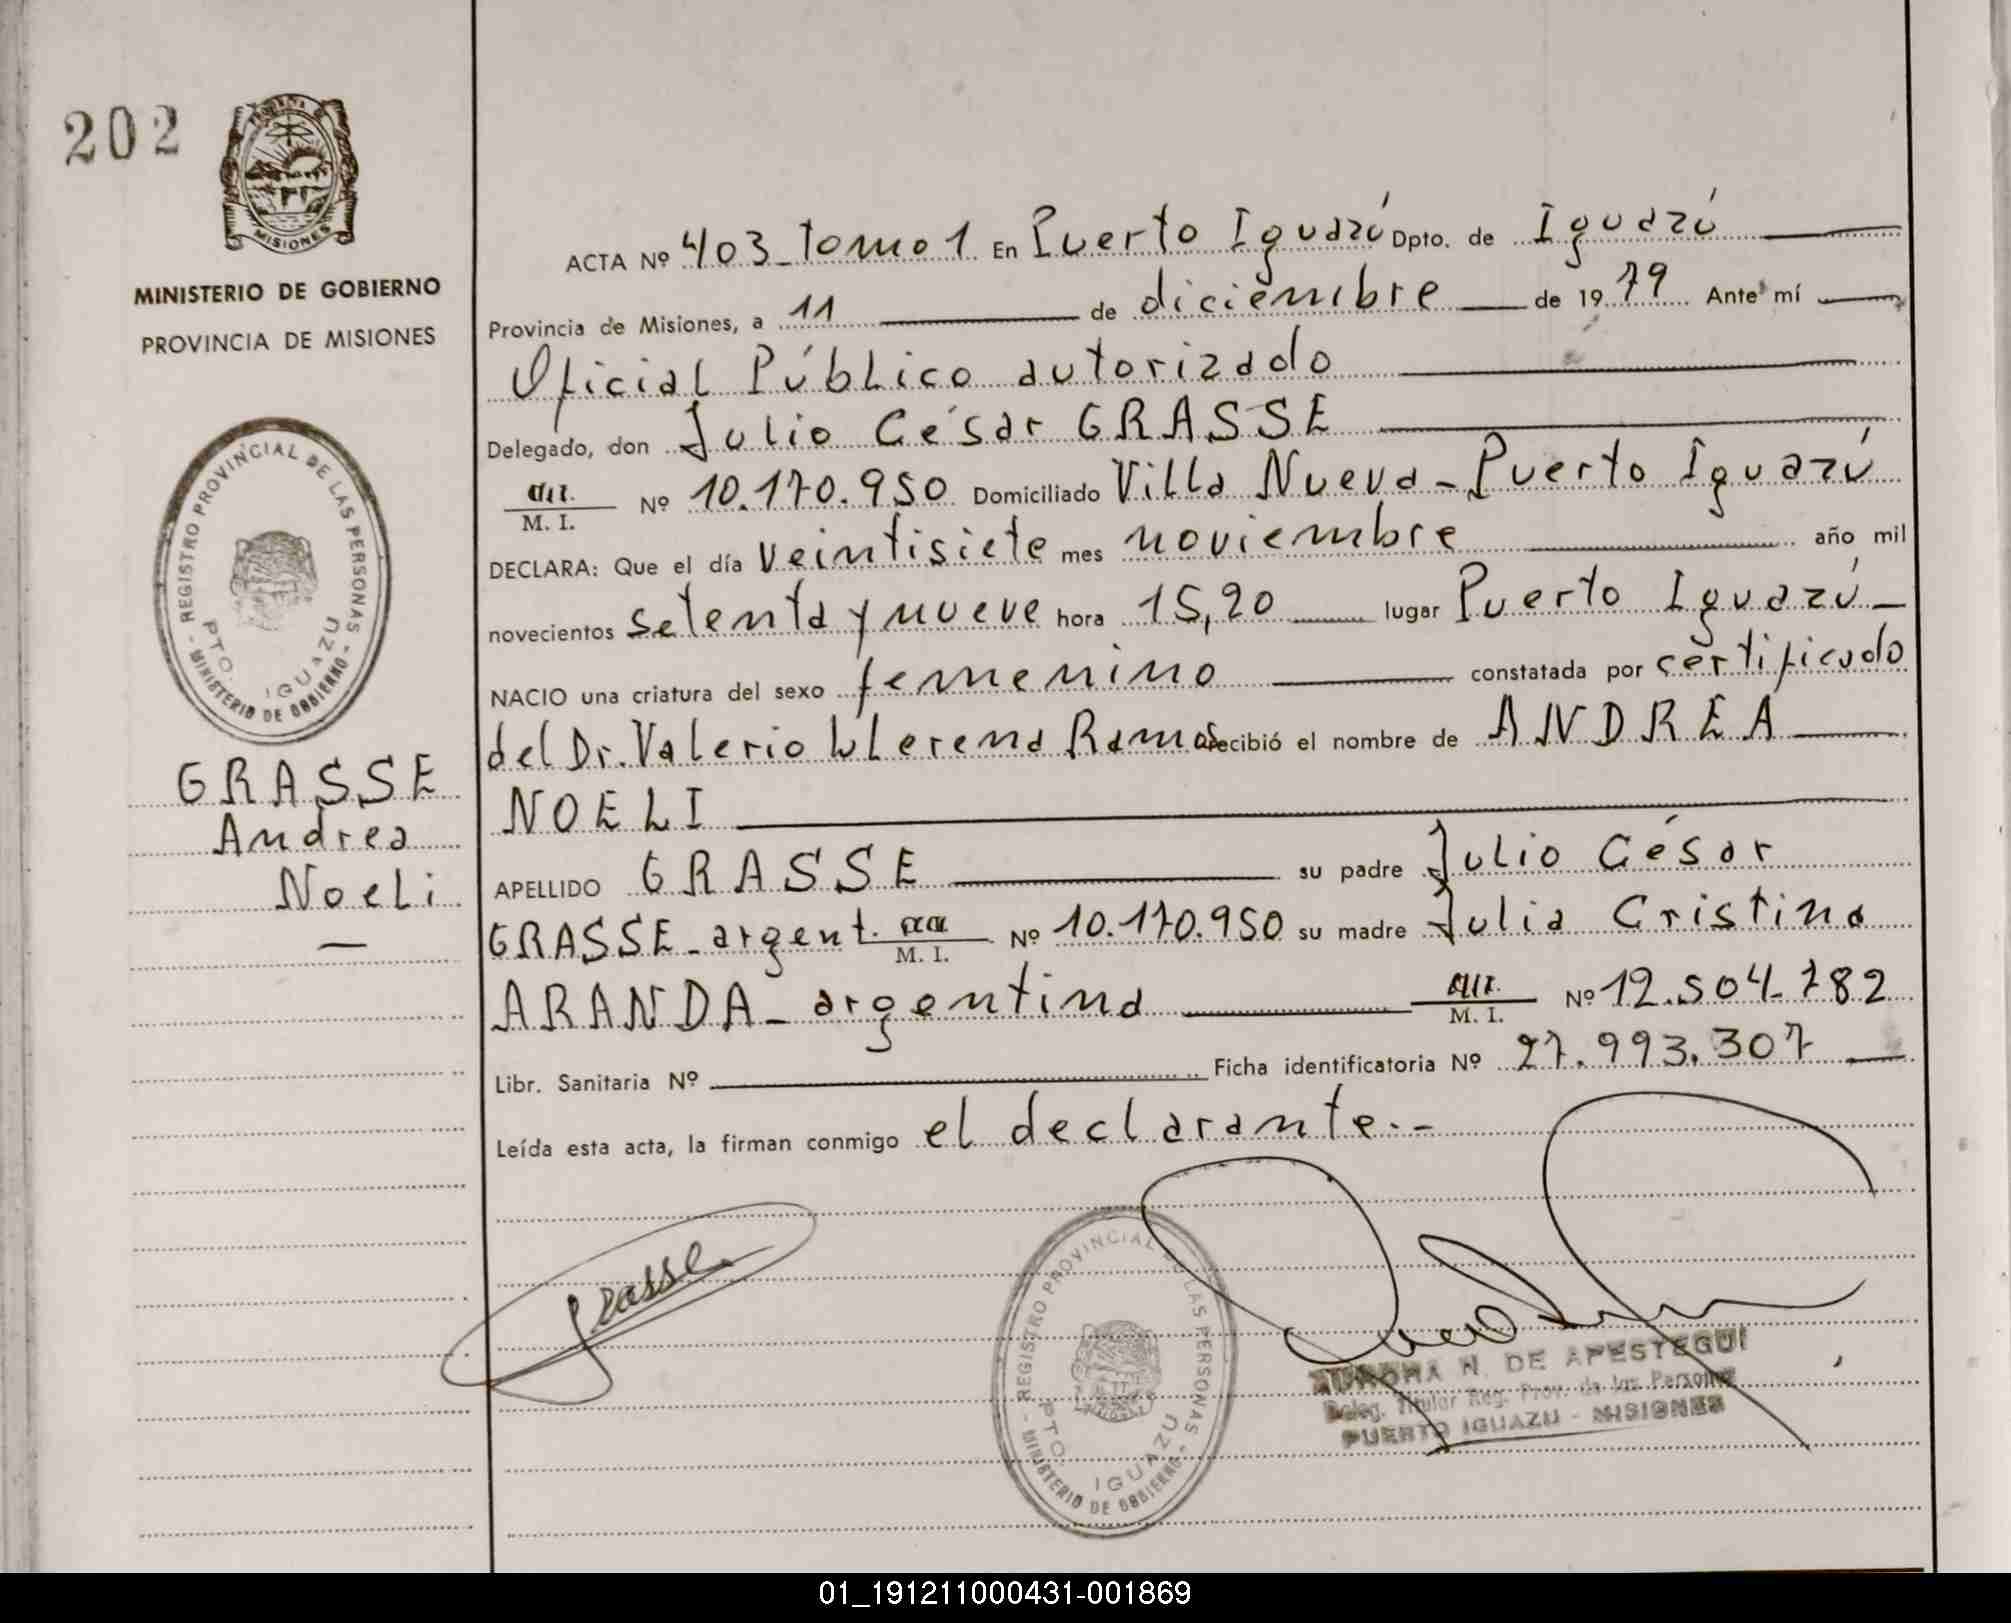 202
MISIONES
MINISTERIO DE GOBIERNO
PROVINCIA DE MISIONES
REGISTRO PROVINCIAL DE LAS PERSONAS
PTO. IGUAZU
- MINISTERIO DE GOBIERNO -
GRASSE
Andrea
Noeli
—
ACTA Nº 403_Tomo 1 En Puerto Iguazú Dpto. de Iguazú
Provincia de Misiones, a 11 de diciembre de 1979 Ante mí
Oficial Público autorizado
Delegado, don Julio César GRASSE
M. I. Nº 10.170.950 Domiciliado Villa Nueva - Puerto Iguazú
DECLARA: Que el día veintisiete mes noviembre año mil
novecientos setenta y nueve hora 15,20 lugar Puerto Iguazú_
NACIO una criatura del sexo femenino constatada por certificado
del Dr. Valerio LLerena Ramos recibió el nombre de ANDREA
NOELI
APELLIDO GRASSE su padre Julio César
GRASSE - argent. M. I. Nº 10.170.950 su madre Julia Cristina
ARANDA - argentina M. I. Nº 12.504.782
Libr. Sanitaria Nº Ficha identificatoria Nº 27.993.307
Leída esta acta, la firman conmigo el declarante.-
Grasse
REGISTRO PROVINCIAL LAS PERSONAS
PTO. IGUAZU
- MINISTERIO DE GOBIERNO -
AURORA N. DE APESTEGUI
Deleg. Titular Reg. Prov. de las Personas
PUERTO IGUAZU - MISIONES
01_191211000431-001869